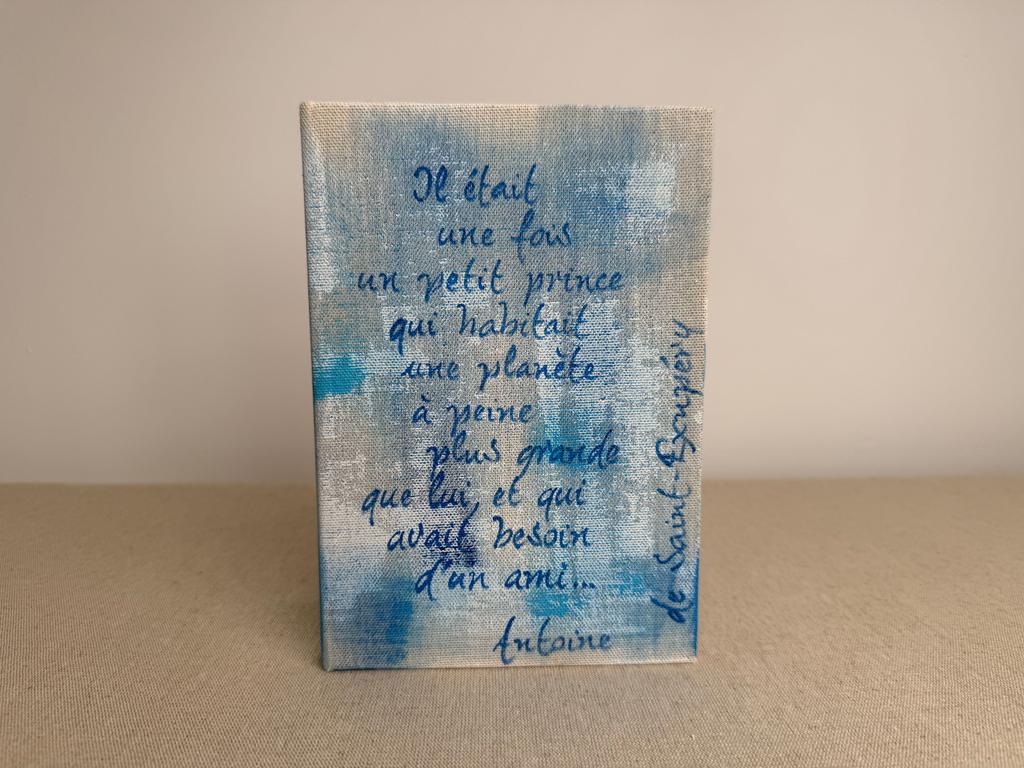 Il était
une fois
un petit prince
qui habitait
une planète
à peine
plus grande
que lui, et qui
avait besoin
d'un ami...
Antoine
de Saint-Exupéry